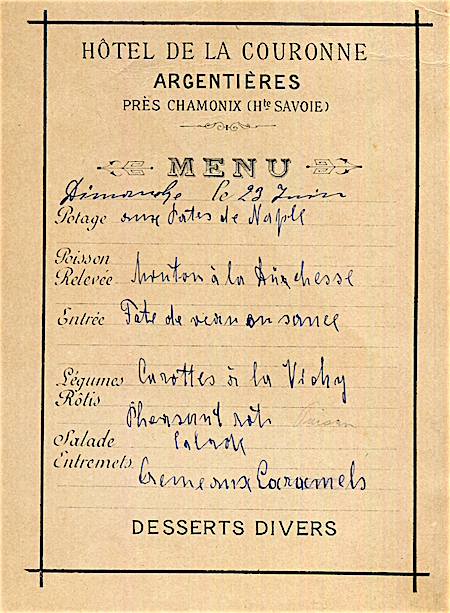 HÔTEL DE LA COURONNE
ARGENTIÈRES
PRÈS CHAMONIX (Hte SAVOIE)
MENU
Dimanche le 23 Juin
Potage aux Pates de Naple
Poisson
Relevée Mouton à la Duchesse
Entrée Tete de veau en sauce
Légumes Carottes à la Vichy
Rôtis
Pheasant roti
Salade Salade
Entremets Creme aux Caramels
DESSERTS DIVERS